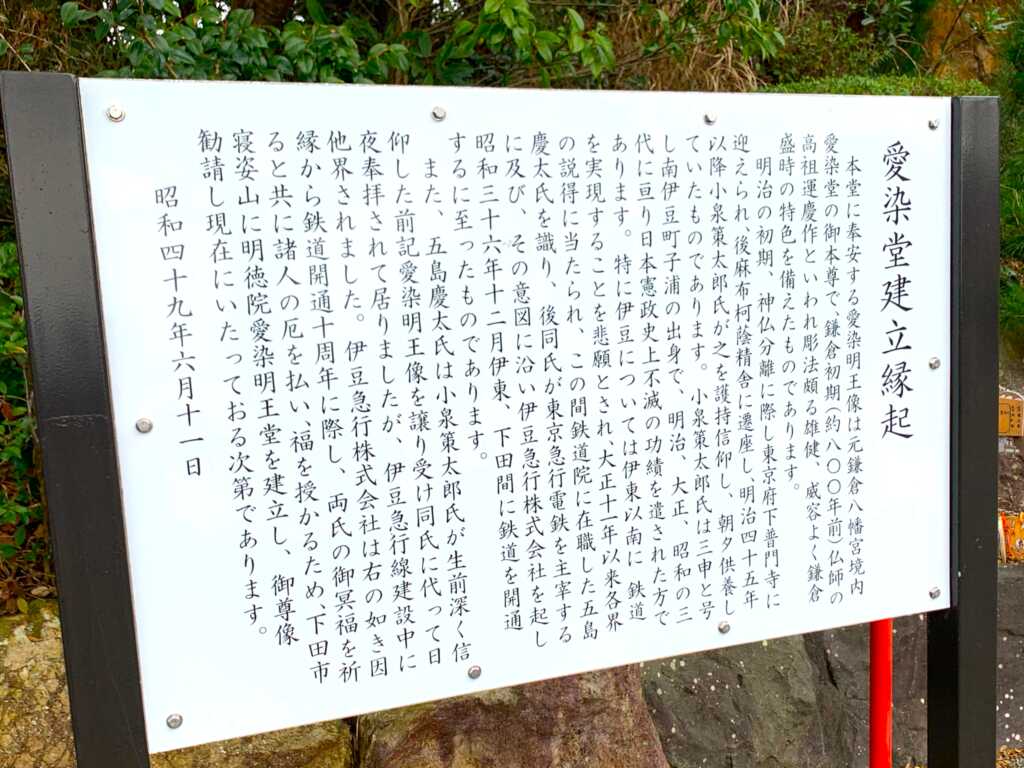 愛染堂建立縁起
本堂に奉安する愛染明王像は元鎌倉八幡宮境内
愛染堂の御本尊で、鎌倉初期(約八〇〇年前)仏師の
高祖運慶作といわれ彫法頗る雄健、威容よく鎌倉
盛時の特色を備えたものであります。
明治の初期、神仏分離に際し東京府下普門寺に
迎えられ、後麻布柯陰精舎に遷座し、明治四十五年
以降小泉策太郎氏が之を護持信仰し、朝夕供養し
ていたものであります。小泉策太郎氏は三申と号
し南伊豆町子浦の出身で、明治、大正、昭和の三
代に亘り日本憲政史上不滅の功績を遺された方で
あります。特に伊豆については伊東以南に鉄道
を実現することを悲願とされ、大正十一年以来各界
の説得に当たられ、この間鉄道院に在職した五島
慶太氏を識り、後同氏が東京急行電鉄を主宰する
に及び、その意図に沿い伊豆急行株式会社を起し
昭和三十六年十二月伊東、下田間に鉄道を開通
するに至ったものであります。
また、五島慶太氏は小泉策太郎氏が生前深く信
仰した前記愛染明王像を譲り受け同氏に代って日
夜奉拝されて居りましたが、伊豆急行線建設中に
他界されました。伊豆急行株式会社は右の如き因
縁から鉄道開通十周年に際し、両氏の御冥福を祈
ると共に諸人の厄を払い、福を授かるため、下田市
寝姿山に明徳院愛染明王堂を建立し、御尊像
勧請し現在にいたっておる次第であります。
昭和四十九年六月十一日